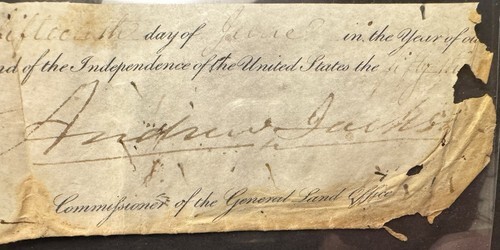 fifteenth day of June in the Year of ou
nd of the Independence of the United States the
Andrew Jacks
Commissioner of the General Land Office